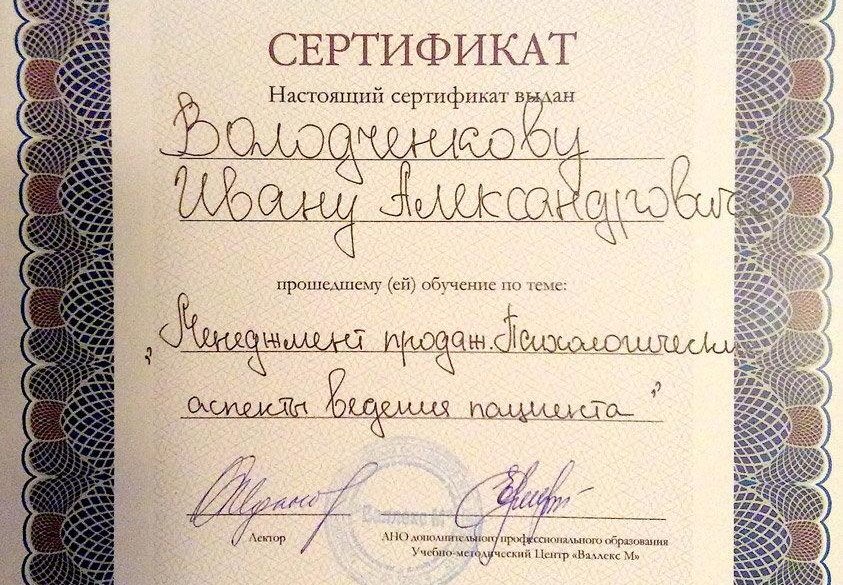 СЕРТИФИКАТ
Настоящий сертификат выдан
Володченкову
Ивану Александровичу
прошедшему (ей) обучение по теме:
„Менеджмент продаж. Психологически
аспекты ведения пациента"
Валлекс М
Лектор
АНО дополнительного профессионального образования
Учебно-методический Центр «Валлекс М»